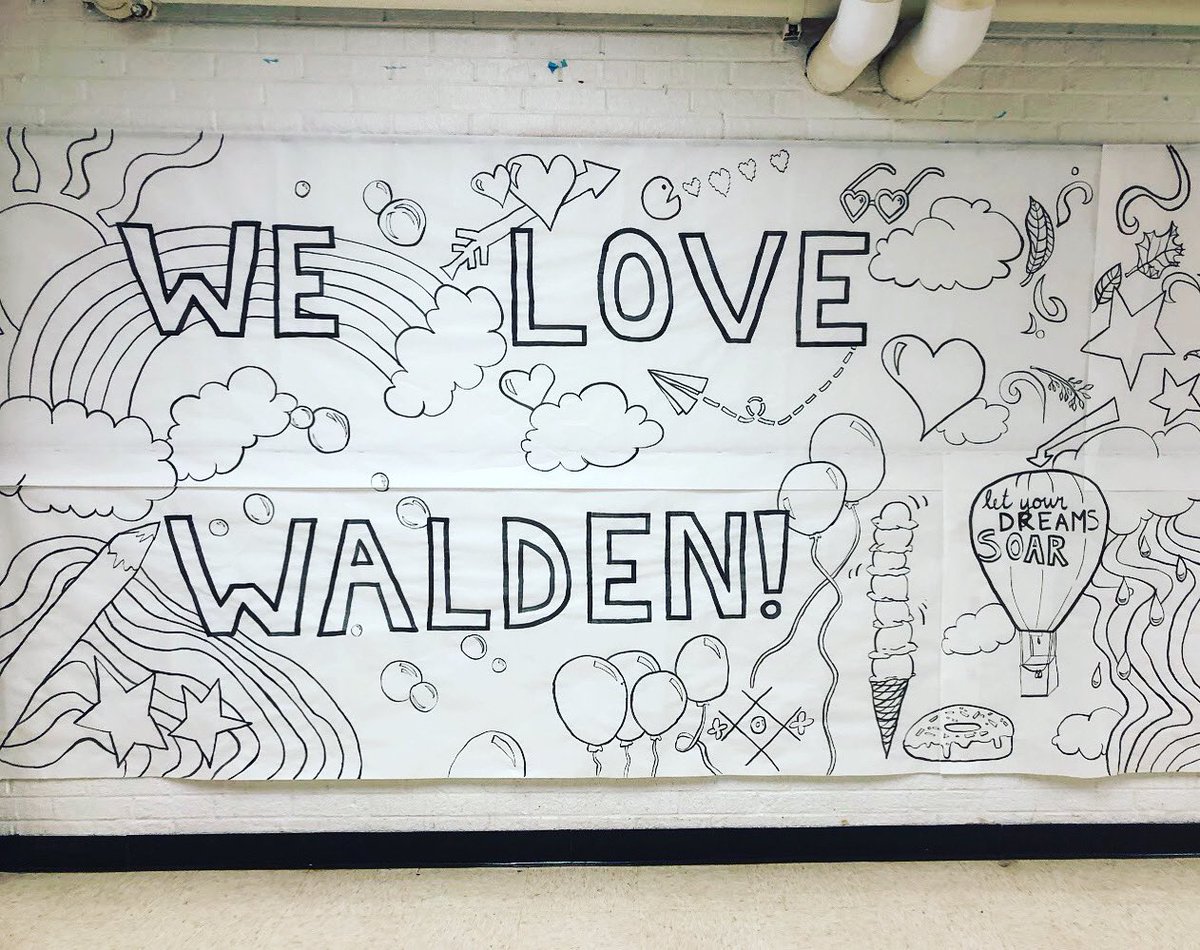 WE LOVE
WALDEN!
let your
DREAMS
SOAR